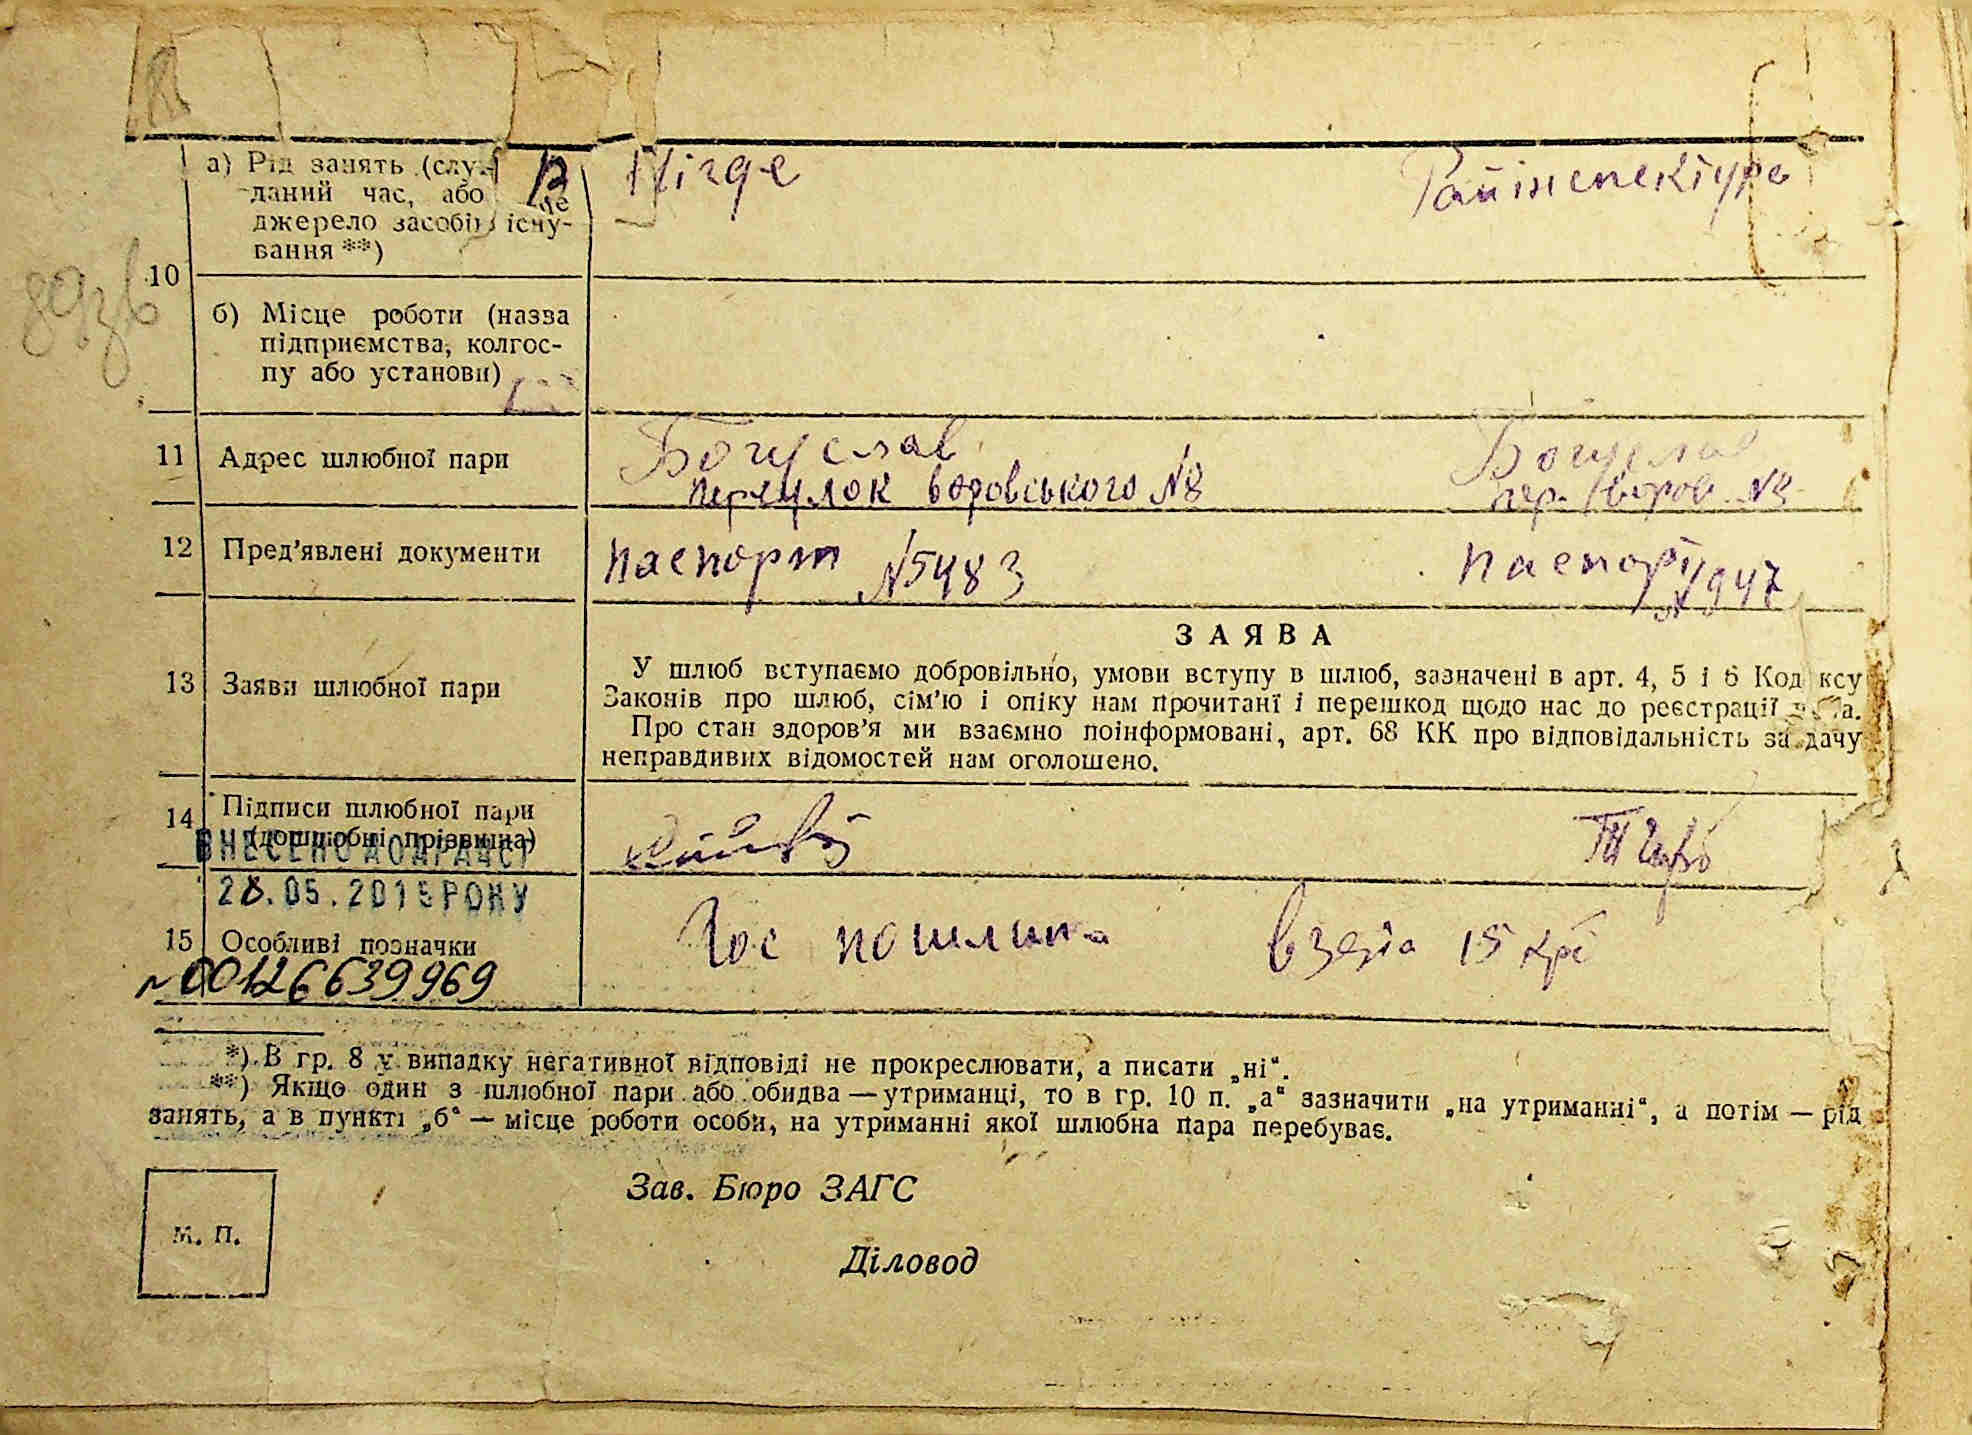 а) Рід занять (слу
даний час, або де
джерело засобів існу-
вання **)
Нігде
Райінспектура
10
б) Місце роботи (назва
підприємства, колгос-
пу або установи)
11 Адрес шлюбної пари
Богуслав
переулок воровського №8
Богуслав
пер. Воров. №8
12 Пред'явлені документи
паспорт №5483
паспорт
13 Заяви шлюбної пари
ЗАЯВА
У шлюб вступаємо добровільно, умови вступу в шлюб, зазначені в арт. 4, 5 і 6 Код ксу
Законів про шлюб, сім'ю і опіку нам прочитані і перешкод щодо нас до реєстрації
Про стан здоров'я ми взаємно поінформовані, арт. 68 КК про відповідальність за дачу
неправдивих відомостей нам оголошено.
14 Підписи шлюбної пари
(дошлюбні прізвища)
ВНЕСЕНО ДО ДРАЦСГ
28.05.2015 РОКУ
15 Особливі позначки
Гос пошлина взята 15 крб
№00126639969
*) В гр. 8 у випадку негативної відповіді не прокреслювати, а писати „ні“.
**) Якщо один з шлюбної пари або обидва — утриманці, то в гр. 10 п. „а“ зазначити „на утриманні“, а потім — рід
занять, а в пункті „б“ — місце роботи особи, на утриманні якої шлюбна пара перебуває.
Зав. Бюро ЗАГС
М. П.
Діловод